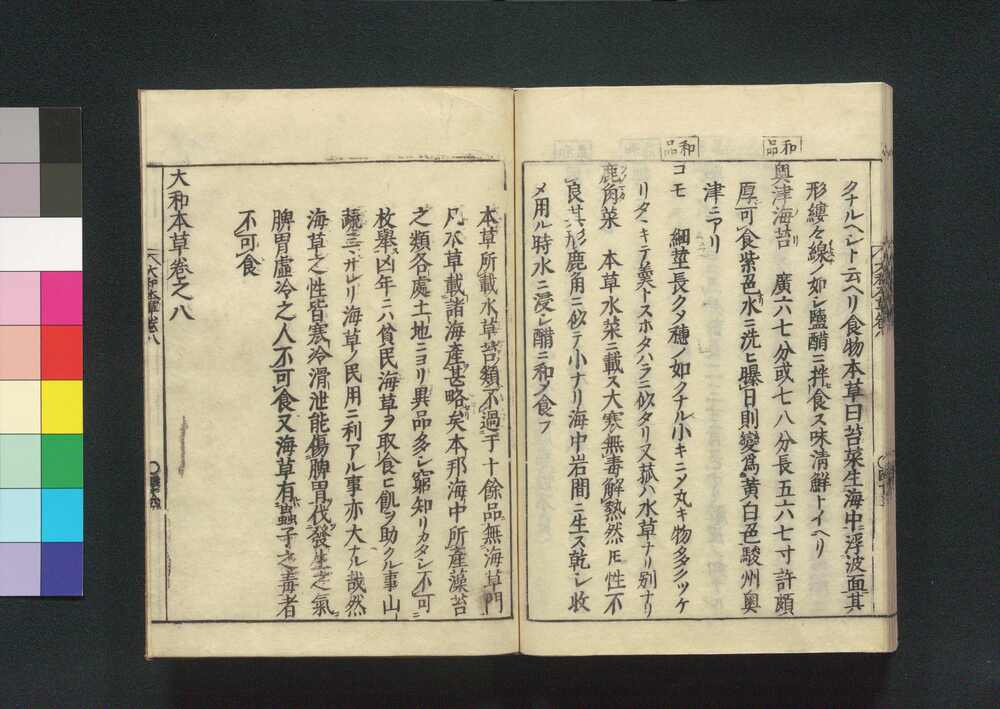 クナルヘシト云ヘリ食物本草曰苔菜生海中浮波面其
形縷々線ノ如シ鹽醋ニ拌食ス味淸鮮トイヘリ
和品
奥津海苔 廣六七分或七八分長五六七寸許頗
厚可食紫色水ニ洗ヒ曝日則變爲黄白色駿州奥
津ニアリ
和品
コモ 細莖長クタ穗ノ如クナル小キニタ丸キ物多クツケ
リタヽキテ羹トスホタハラニ似タリ又菰ハ水草ナリ別ナリ
鹿角菜 本草水菜ニ載ス大寒無毒解熱然𪜈性不
良其形鹿角ニ似テ小ナリ海中岩間ニ生ス乾シ收
メ用ル時水ニ浸シ醋ニ和メ食フ
本草所載水草苔類不過于十餘品無海草門
凡本草載諸海產甚略矣本邦海中所產藻苔
之類各處土地ニヨリ異品多シ窮知リカタシ不可
枚擧凶年ニハ貧民海草ヲ取食ヒ飢ヲ助クル事山
蔬ニマサレリ海草ノ民用ニ利アル事亦大ナル哉然
海草之性皆寒冷滑泄能傷脾胃伐發生之氣
脾胃虛冷之人不可食又海草有蟲子之毒者
不可食
大和本草卷之八